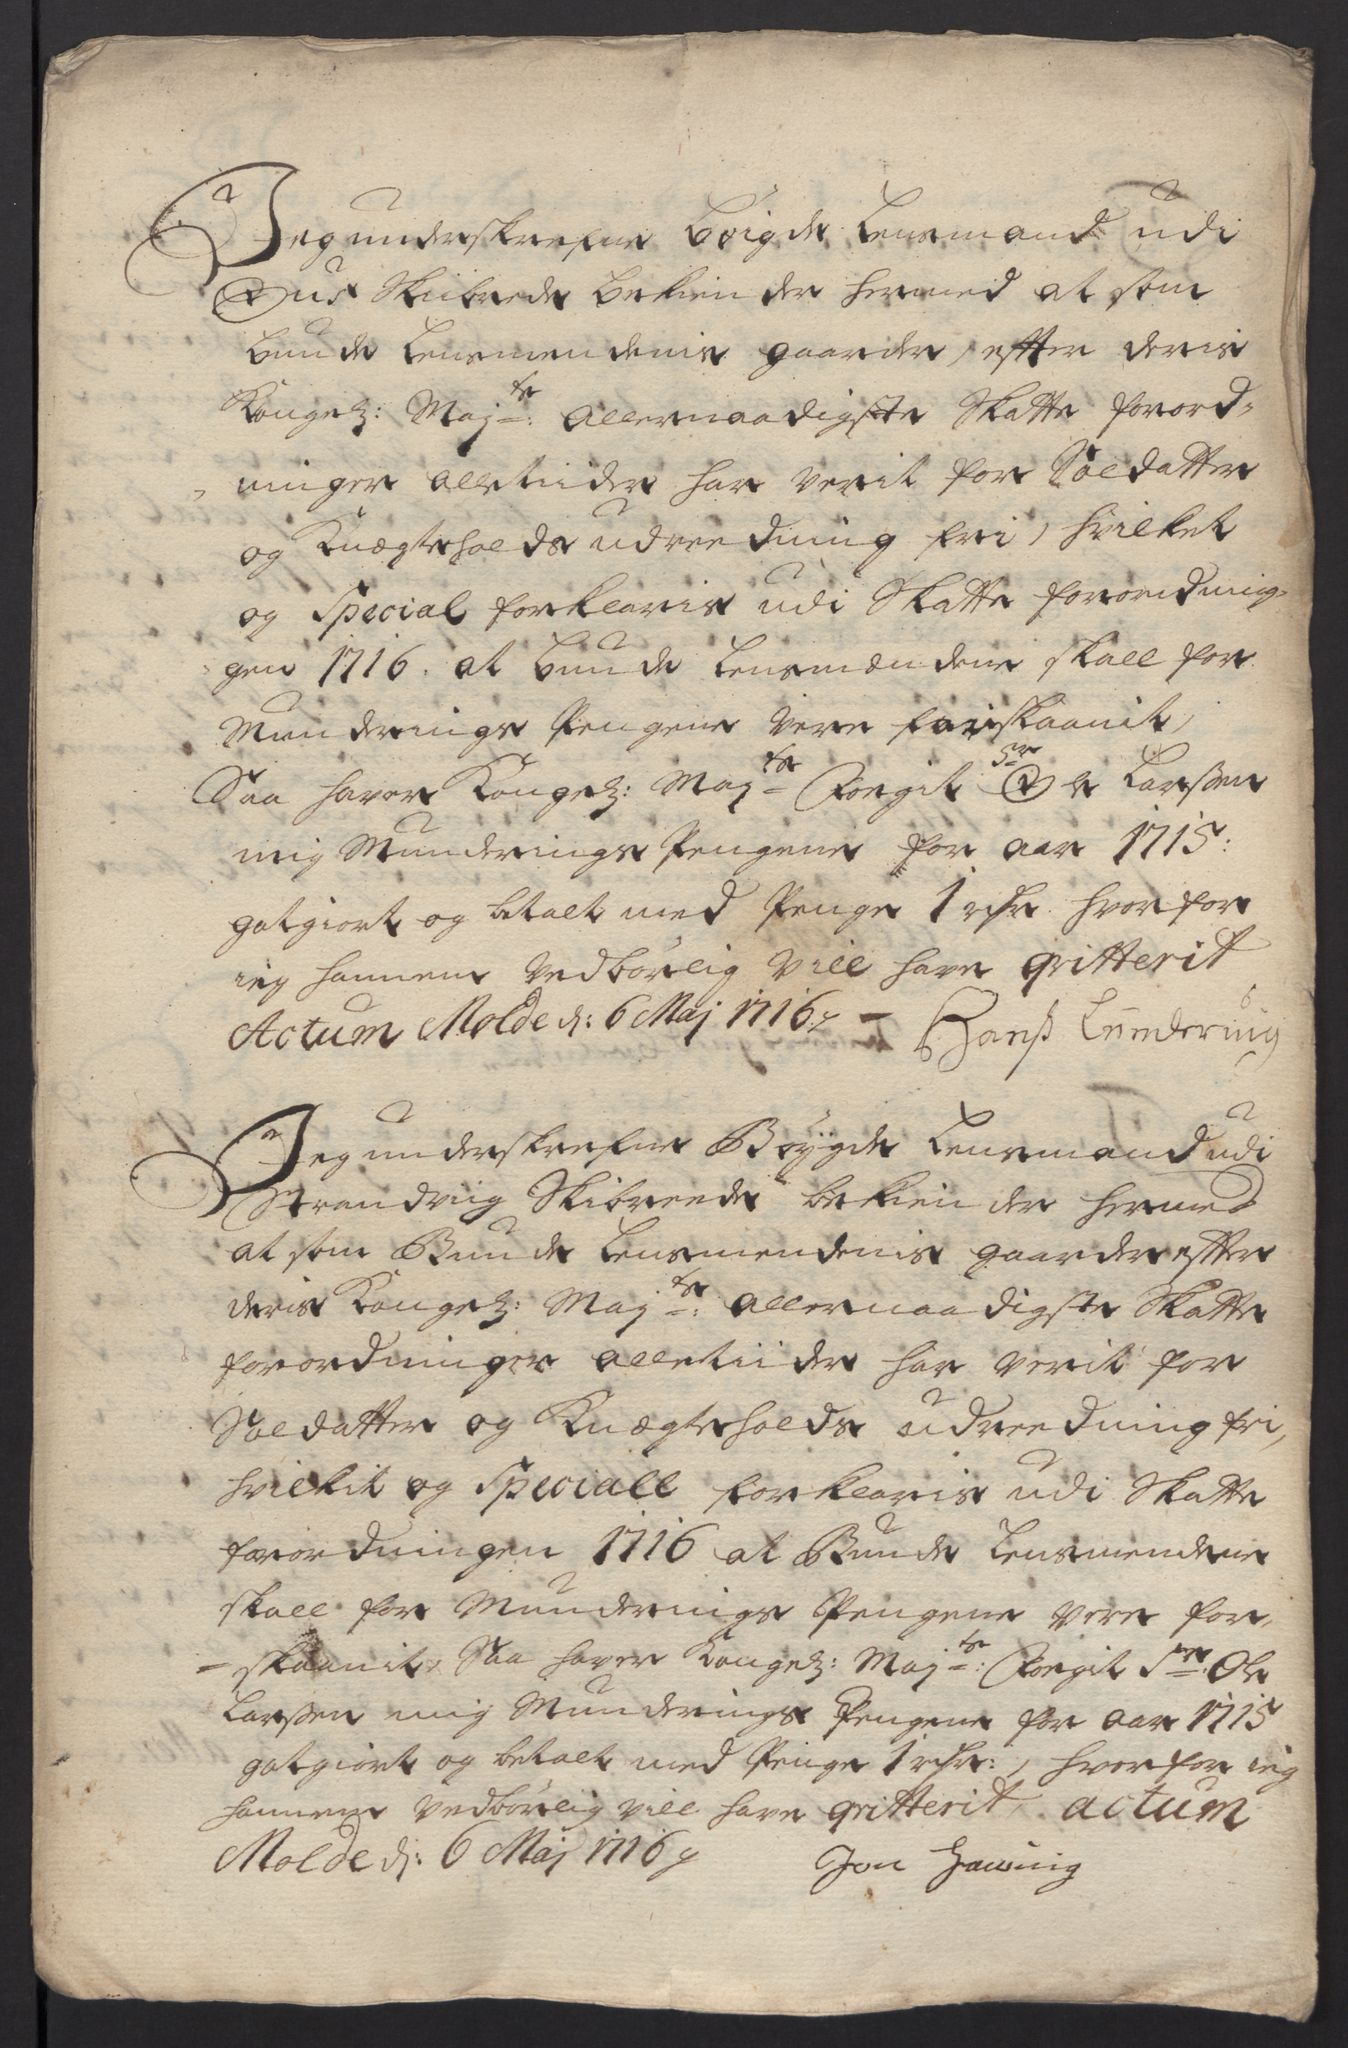 Jeg underskrefne Böigde Lensmand udi
Ous Skibrede bekiender hermed at som
bunde Lensmendenis gaarder, effter deris
Kongel: Maj:ts allernaadigste Skatte forord-
ninger alletiider har verit for Soldatter
og Knegteholds udreedning fri, hvilket
og Special forklaris udi Skatte forordning-
gen 1716. at bunde Lensmendene skall for
Munderings Pengene vere forskaanit,
Saa haver Kongel: Maj:ts Foegit Sr Ole Larssen
mig Munderings Pengene for aar 1715:
gotgiort og betalt med Penge 1 rdr hvor for
ieg hannem vedbörlig vill have qvitterit
Actum Molde d: 6 Maj 1716
Hanss Lündering
Jeg underskrefne Böygde Lensmand udi
Strandviig Skibreede bekiender hermed
at som Bunde Lensmendenis gaarder effter
deris Kongel: Maj:ts allernaadigste Skatte
forordninger alletiider har verit for
Soldatter og Knegteholds udreedning fri,
hvilkit og Speciall forklaris udi Skatte
forordningen 1716 at Bunde Lensmendene
skall for Munderings Pengene vere for-
skaanit, Saa haver Kongel: Maj:ts Foegit Sr: Ole
Larssen mig Munderings Pengene for aar 1715
gotgiort og betalt med Penge 1 rdr:, hvor for ieg
hannem vedbörlig vill have qvitterit, actum
Molde d: 6 Maj 1716
Jon